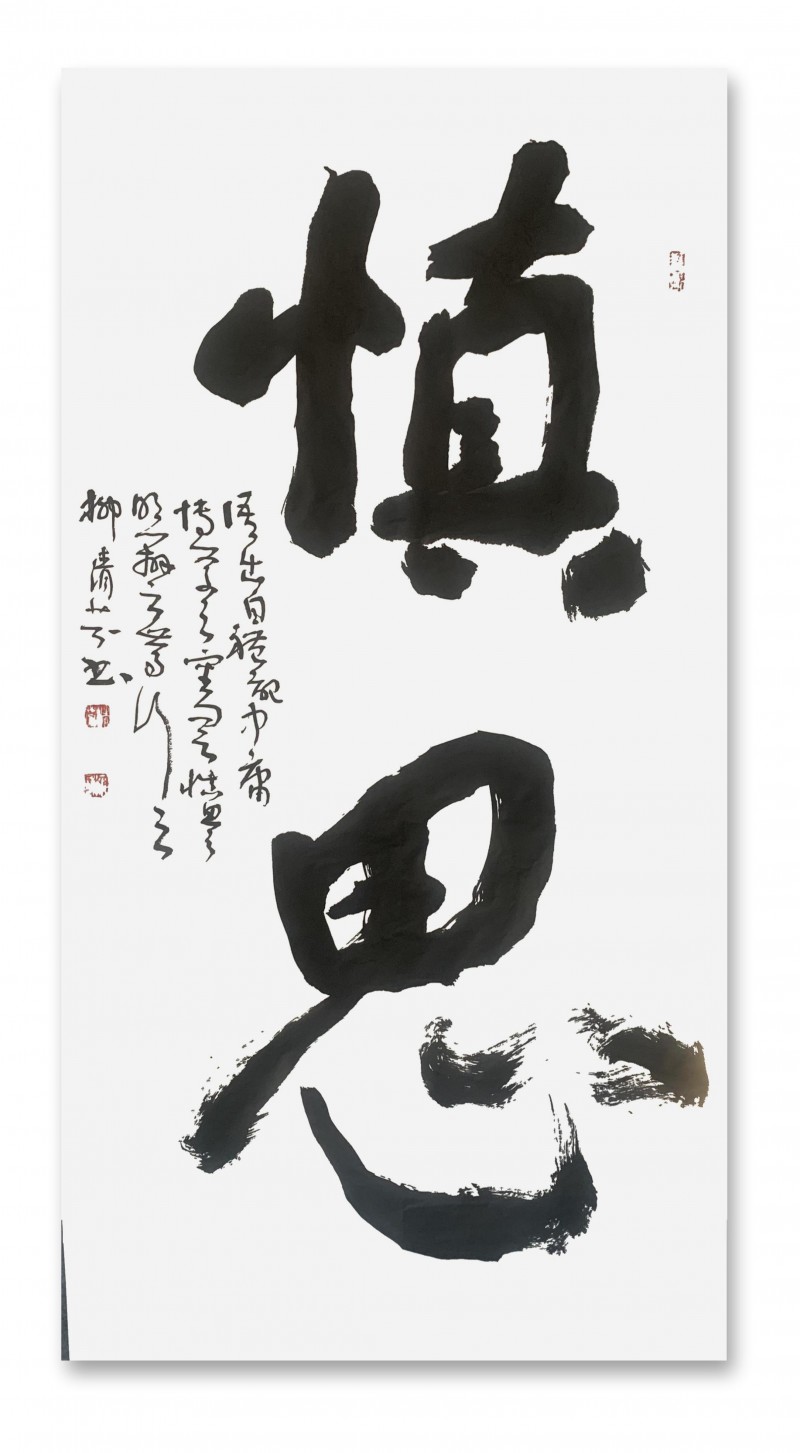 慎
思
语出自禮記中庸
博学之審问之慎思之
明辨之笃行之
柳清书